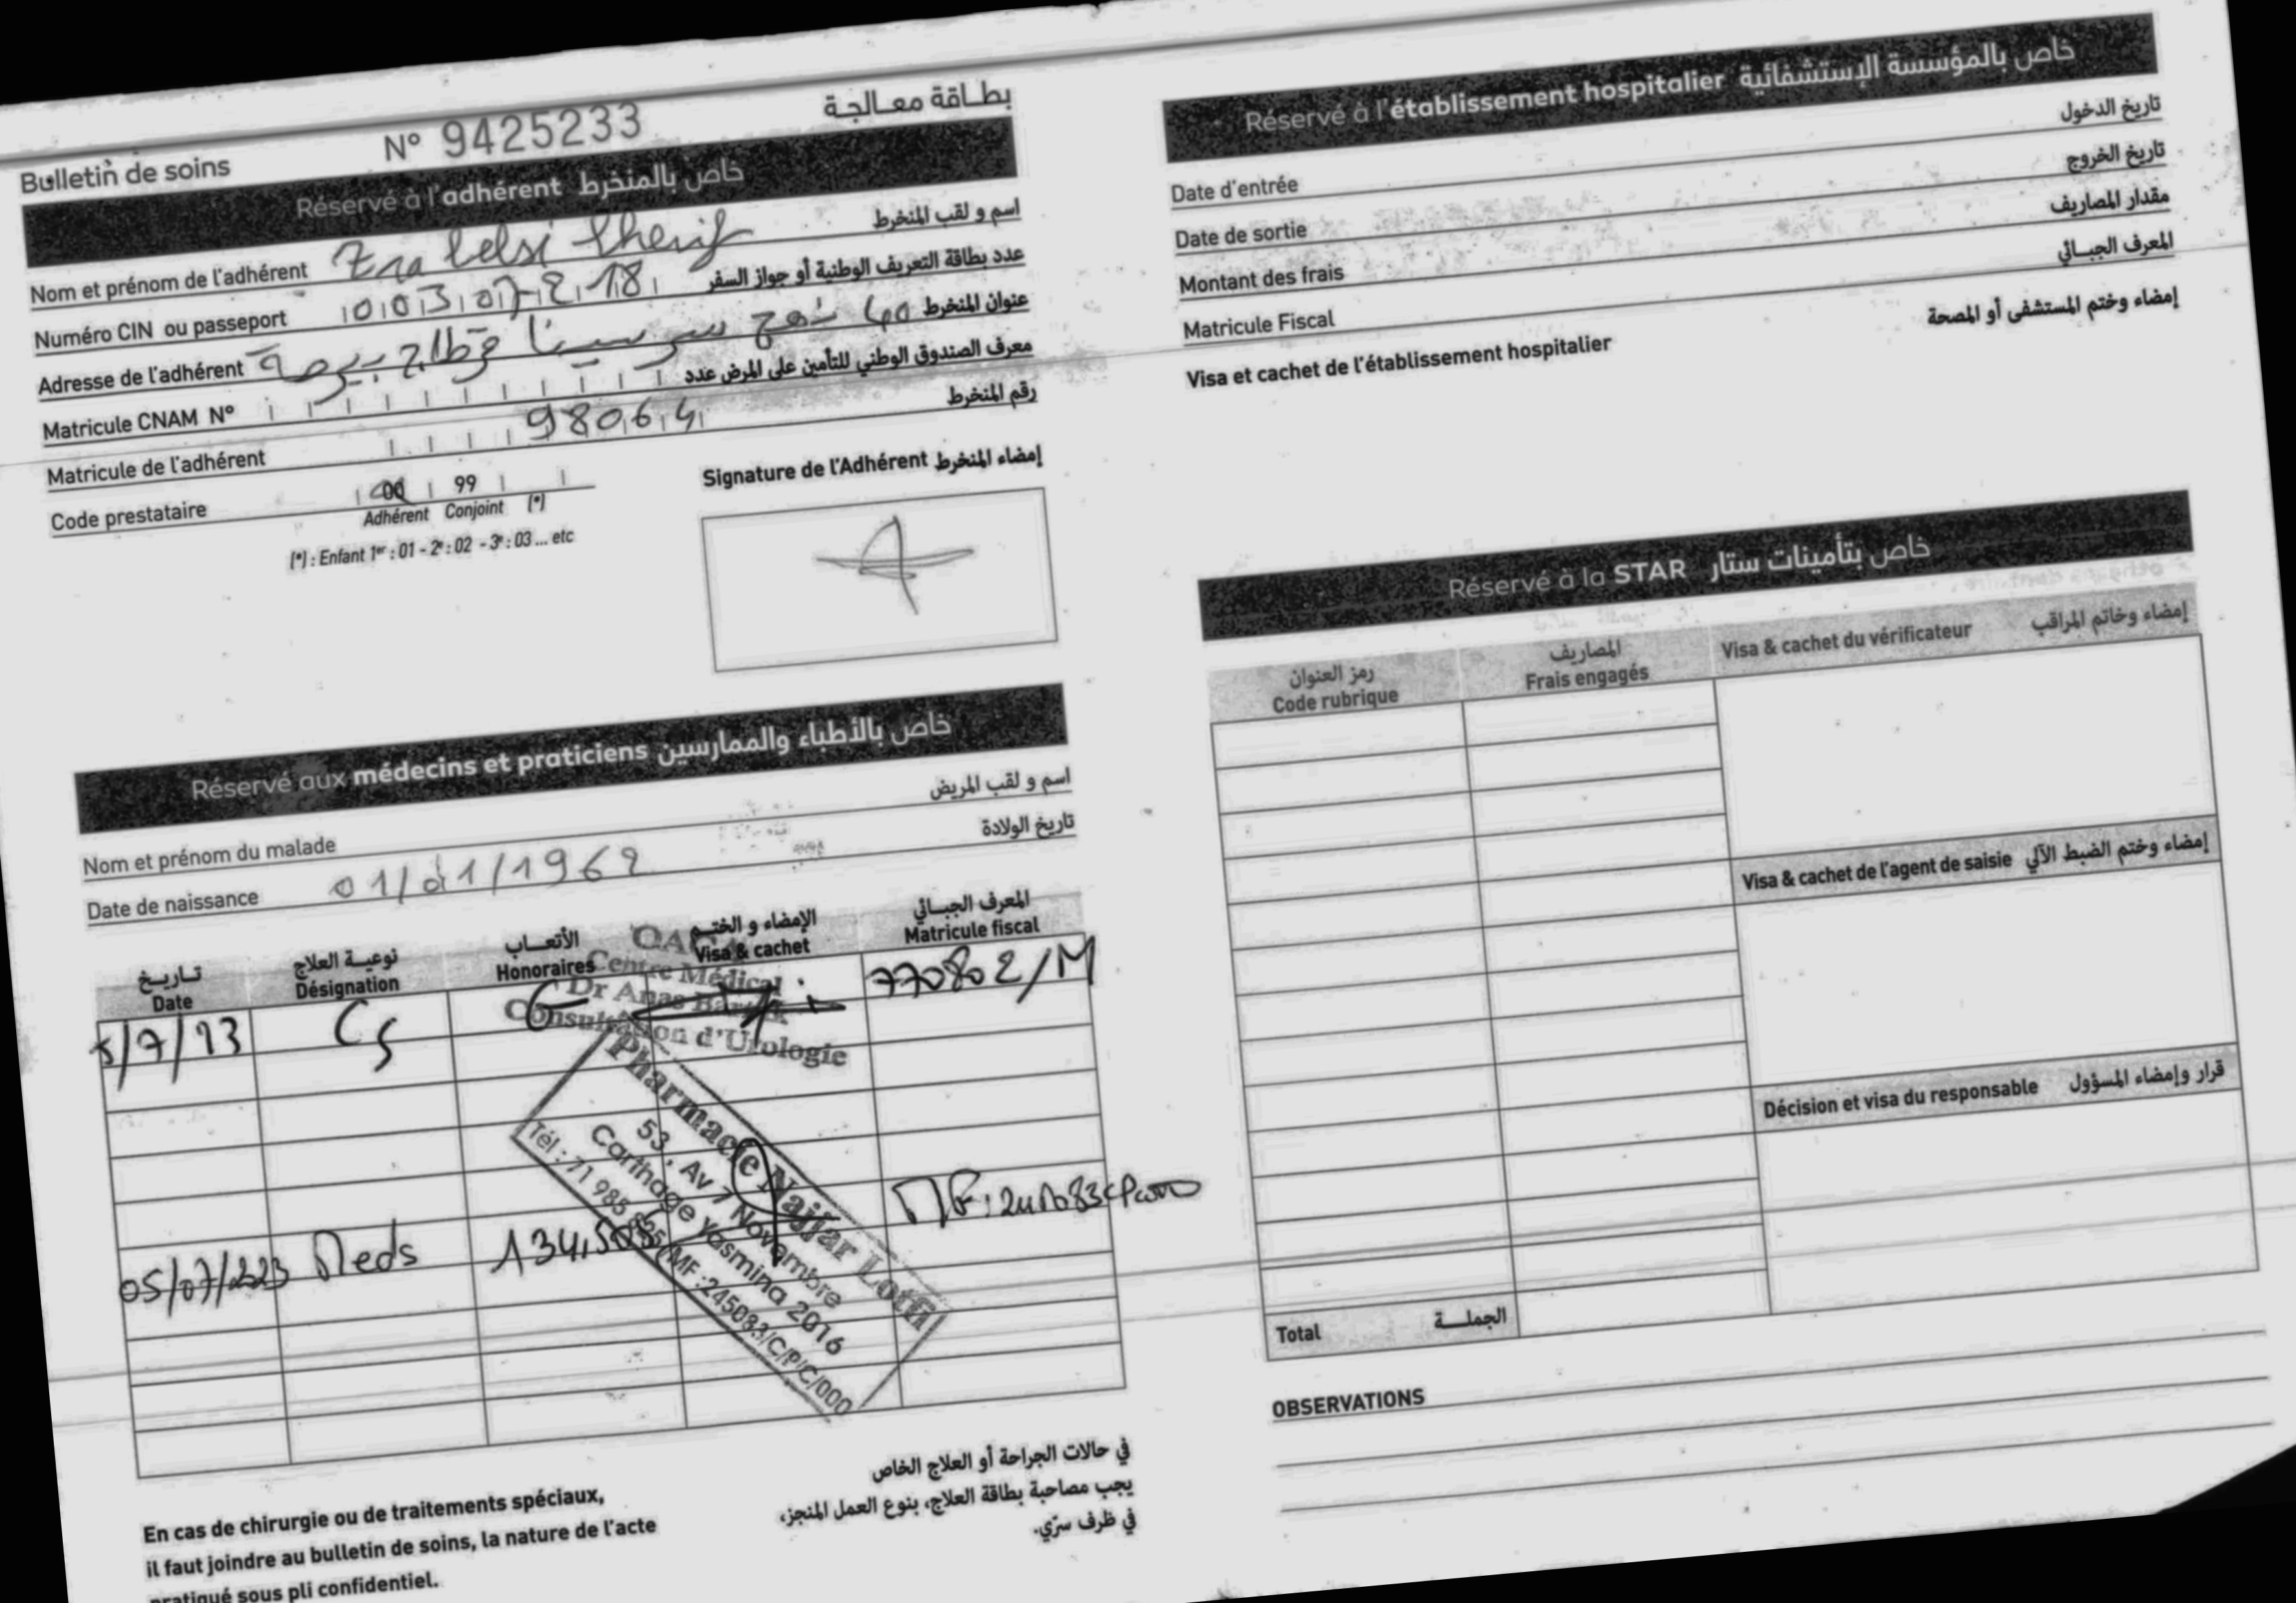 Bulletin de soins
N° 9425233
بطـاقة معـالجـة
Réservé à l'adhérent خاص بالمنخرط
Nom et prénom de l'adhérent Trabelsi Cherif اسم و لقب المنخرط
Numéro CIN ou passeport 00307218 عدد بطاقة التعريف الوطنية أو جواز السفر
Adresse de l'adhérent 40 نهج سرسينا قرطاج بيرصة عنوان المنخرط
Matricule CNAM N° معرف الصندوق الوطني للتأمين على المرض عدد
Matricule de l'adhérent 98064 رقم المنخرط
Code prestataire 00 99
Adhérent Conjoint (*)
(*) : Enfant 1er : 01 - 2e : 02 - 3e : 03 ... etc
Signature de l'Adhérent إمضاء المنخرط
Réservé aux médecins et praticiens خاص بالأطباء والممارسين
Nom et prénom du malade اسم و لقب المريض
Date de naissance 01/01/1962 تاريخ الولادة
تـاريـخ نوعيـة العلاج الأتعـاب الإمضاء و الختـم المعرف الجبـائي
Date Désignation Honoraires Visa & cachet Matricule fiscal
5/7/23 CS 770802/M
Centre Médical
Dr Anas
Consultation d'Urologie
Pharmacie Najjar Lotfi
53, Av 7 Novembre
Carthage Yasmina 2016
Tél : 71 985 MF :245083/C/P/C/000
05/07/2023 Meds 134,505
En cas de chirurgie ou de traitements spéciaux,
il faut joindre au bulletin de soins, la nature de l'acte
pratiqué sous pli confidentiel.
في حالات الجراحة أو العلاج الخاص
يجب مصاحبة بطاقة العلاج، بنوع العمل المنجز،
في ظرف سرّي.
Réservé à l'établissement hospitalier خاص بالمؤسسة الإستشفائية
Date d'entrée تاريخ الدخول
Date de sortie تاريخ الخروج
Montant des frais مقدار المصاريف
Matricule Fiscal المعرف الجبـائي
Visa et cachet de l'établissement hospitalier إمضاء وختم المستشفى أو المصحة
Réservé à la STAR خاص بتأمينات ستار
رمز العنوان المصاريف
Code rubrique Frais engagés
Visa & cachet du vérificateur إمضاء وخاتم المراقب
Visa & cachet de l'agent de saisie إمضاء وختم الضبط الآلي
Décision et visa du responsable قرار وإمضاء المسؤول
Total الجملـــة
OBSERVATIONS